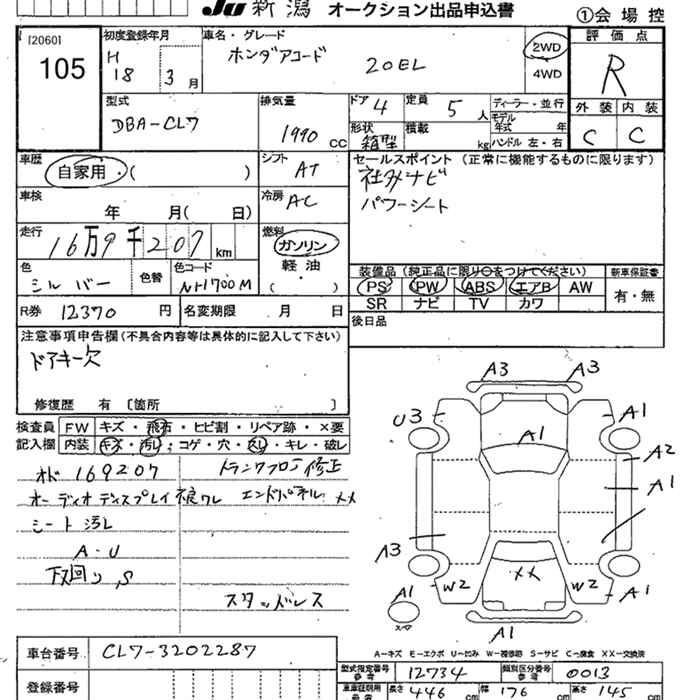 JU 新潟 オークション出品申込書 ①会場控
[2060]
105
初度登録年月
H
18 3月
車名・グレード
ホンダアコード 20EL
2WD
4WD
評価点
R
型式
DBA-CL7
排気量
1990 CC
ドア 4
定員 5人
形状 箱型
積載 kg
ディーラー・並行
モデル年式 年
ハンドル 左・右
外装 内装
C C
車歴
自家用・( )
シフト
AT
セールスポイント (正常に機能するものに限ります)
社外ナビ
パワーシート
車検
年 月(日)
冷房
AC
走行
16万9千207 km
燃料
ガソリン
軽油・
( )
色
シルバー
色替
色コード
NH700M
装備品 (純正品に限り○をつけてください) 新車保証書
PS PW ABS エアB AW 有・無
SR ナビ TV カワ
R券 12370 円 名変期限 月 日
後日品
注意事項申告欄(不具合内容等は具体的に記入して下さい)
ドアキー欠
修復歴 有〔箇所 〕
検査員 FW キズ・飛石・ヒビ割・リペア跡・×要
記入欄 内装 キズ・汚れ・コゲ・穴・スレ・キレ・破レ
オド 169207 トランクフロア修正
オーディオディスプレイ液晶ワレ エンドパネル XX
シート汚レ
A・U
下回り、S
スタッドレス
A3 A3
U3 A1 A1
A2
A1
A3
W2 XX W2
A1 A1
スペア
A1
A-キズ E-エクボ U-凹み W-補修跡 S-サビ C-腐食 XX-交換済
車台番号 CL7-3202287
型式指定番号 12734 類別区分番号 0013
登録番号
長さ 446 cm 幅 176 cm 高さ 145 cm